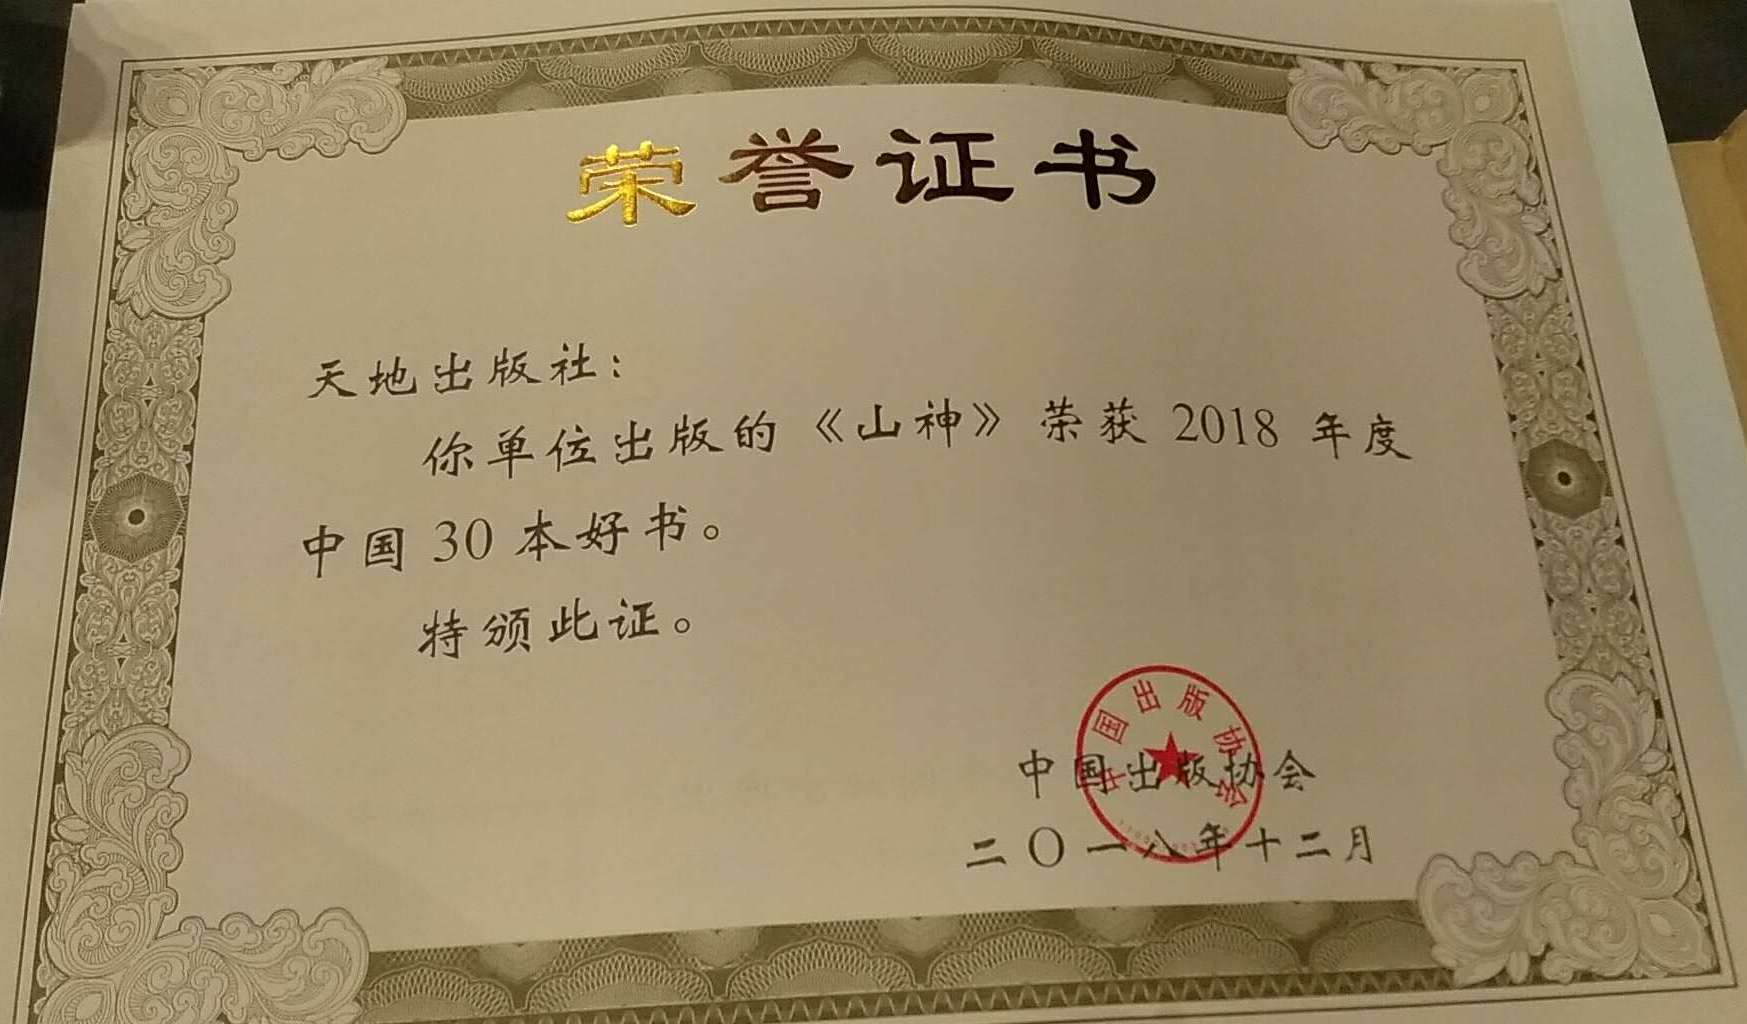 荣誉证书
天地出版社：
你单位出版的《山神》荣获 2018 年度
中国 30 本好书。
特颁此证。
中国出版协会
中国出版协会
二〇一八年十二月